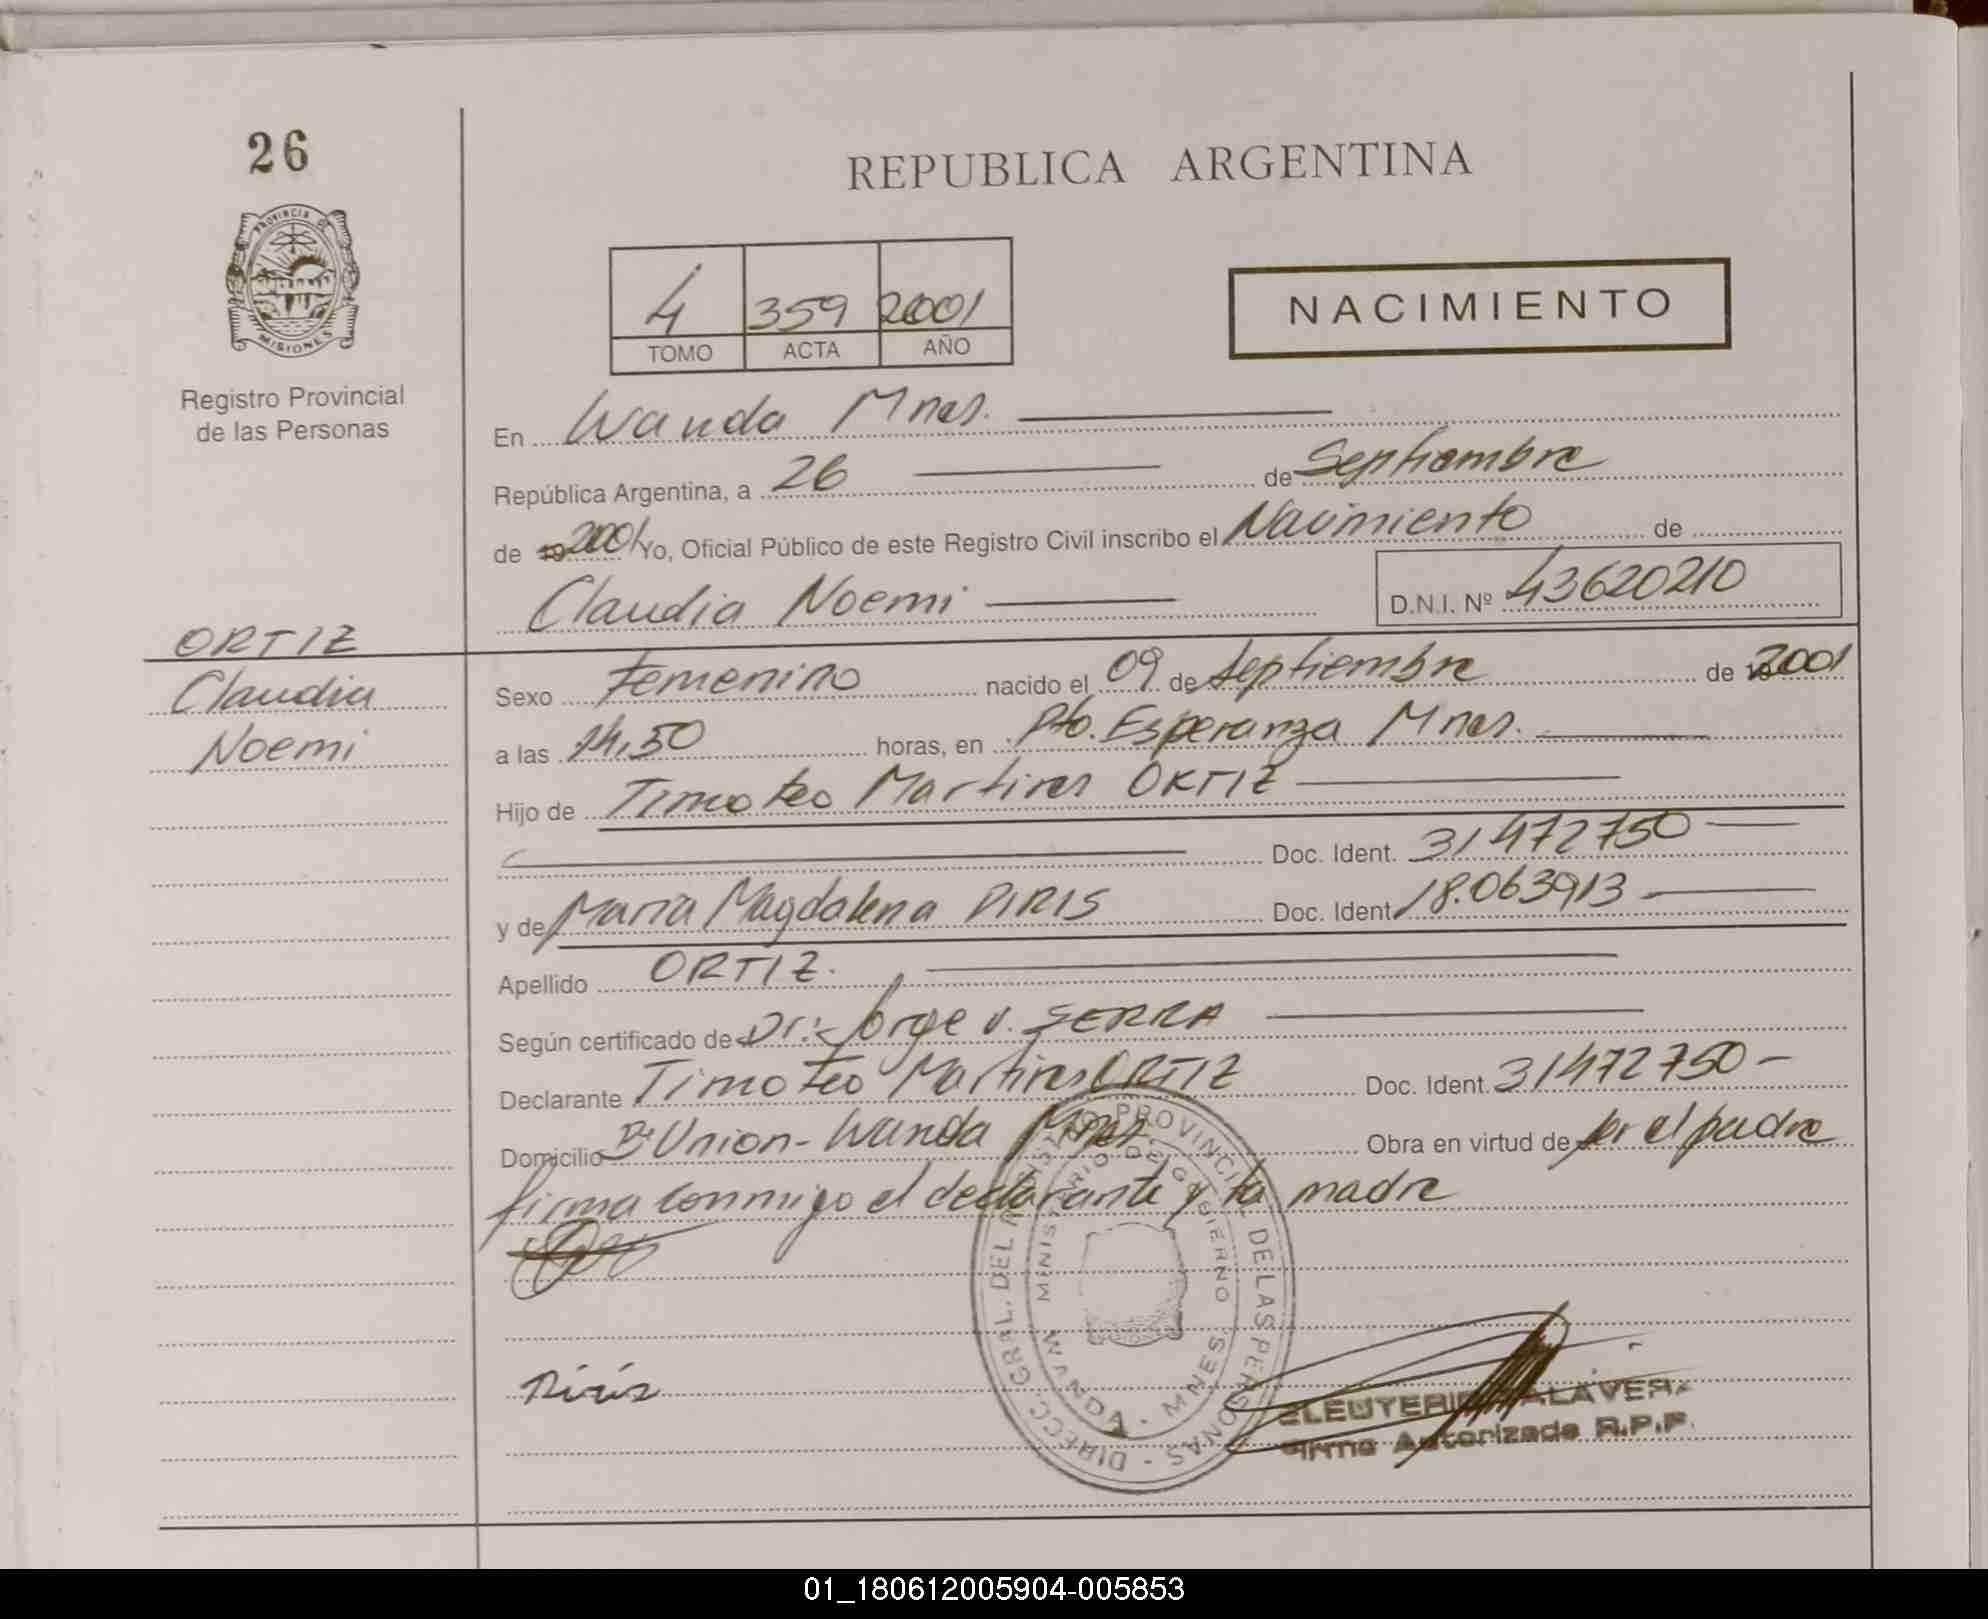 26
REPUBLICA ARGENTINA
PROVINCIA DE
MISIONES
4 359 2001
TOMO ACTA AÑO
NACIMIENTO
Registro Provincial
de las Personas
En Wanda Mnes.
República Argentina, a 26 de Septiembre
de 19 2001 Yo, Oficial Público de este Registro Civil inscribo el Nacimiento de
Claudia Noemi D.N.I. Nº 43620210
ORTIZ
Claudia
Noemi
Sexo Femenino nacido el 09 de Septiembre de 19 2001
a las 14,50 horas, en Pto. Esperanza Mnes.
Hijo de Timoteo Martires ORTIZ
Doc. Ident. 31472750
y de Maria Magdalena PIRIS Doc. Ident. 18.063913
Apellido ORTIZ.
Según certificado de Dr: Jorge V. SERRA
Declarante Timoteo Martires ORTIZ Doc. Ident. 31472750
Domicilio Bº Union - Wanda Mnes. Obra en virtud de ser el padre
firma conmigo el declarante y la madre
Piris
DIRECC. GRAL. DEL REGISTRO PROVINCIAL DE LAS PERSONAS
MINISTERIO DE GOBIERNO
WANDA - MNES.
ELEUTERIO TALAVERA
Firma Autorizada R.P.P.
01_180612005904-005853